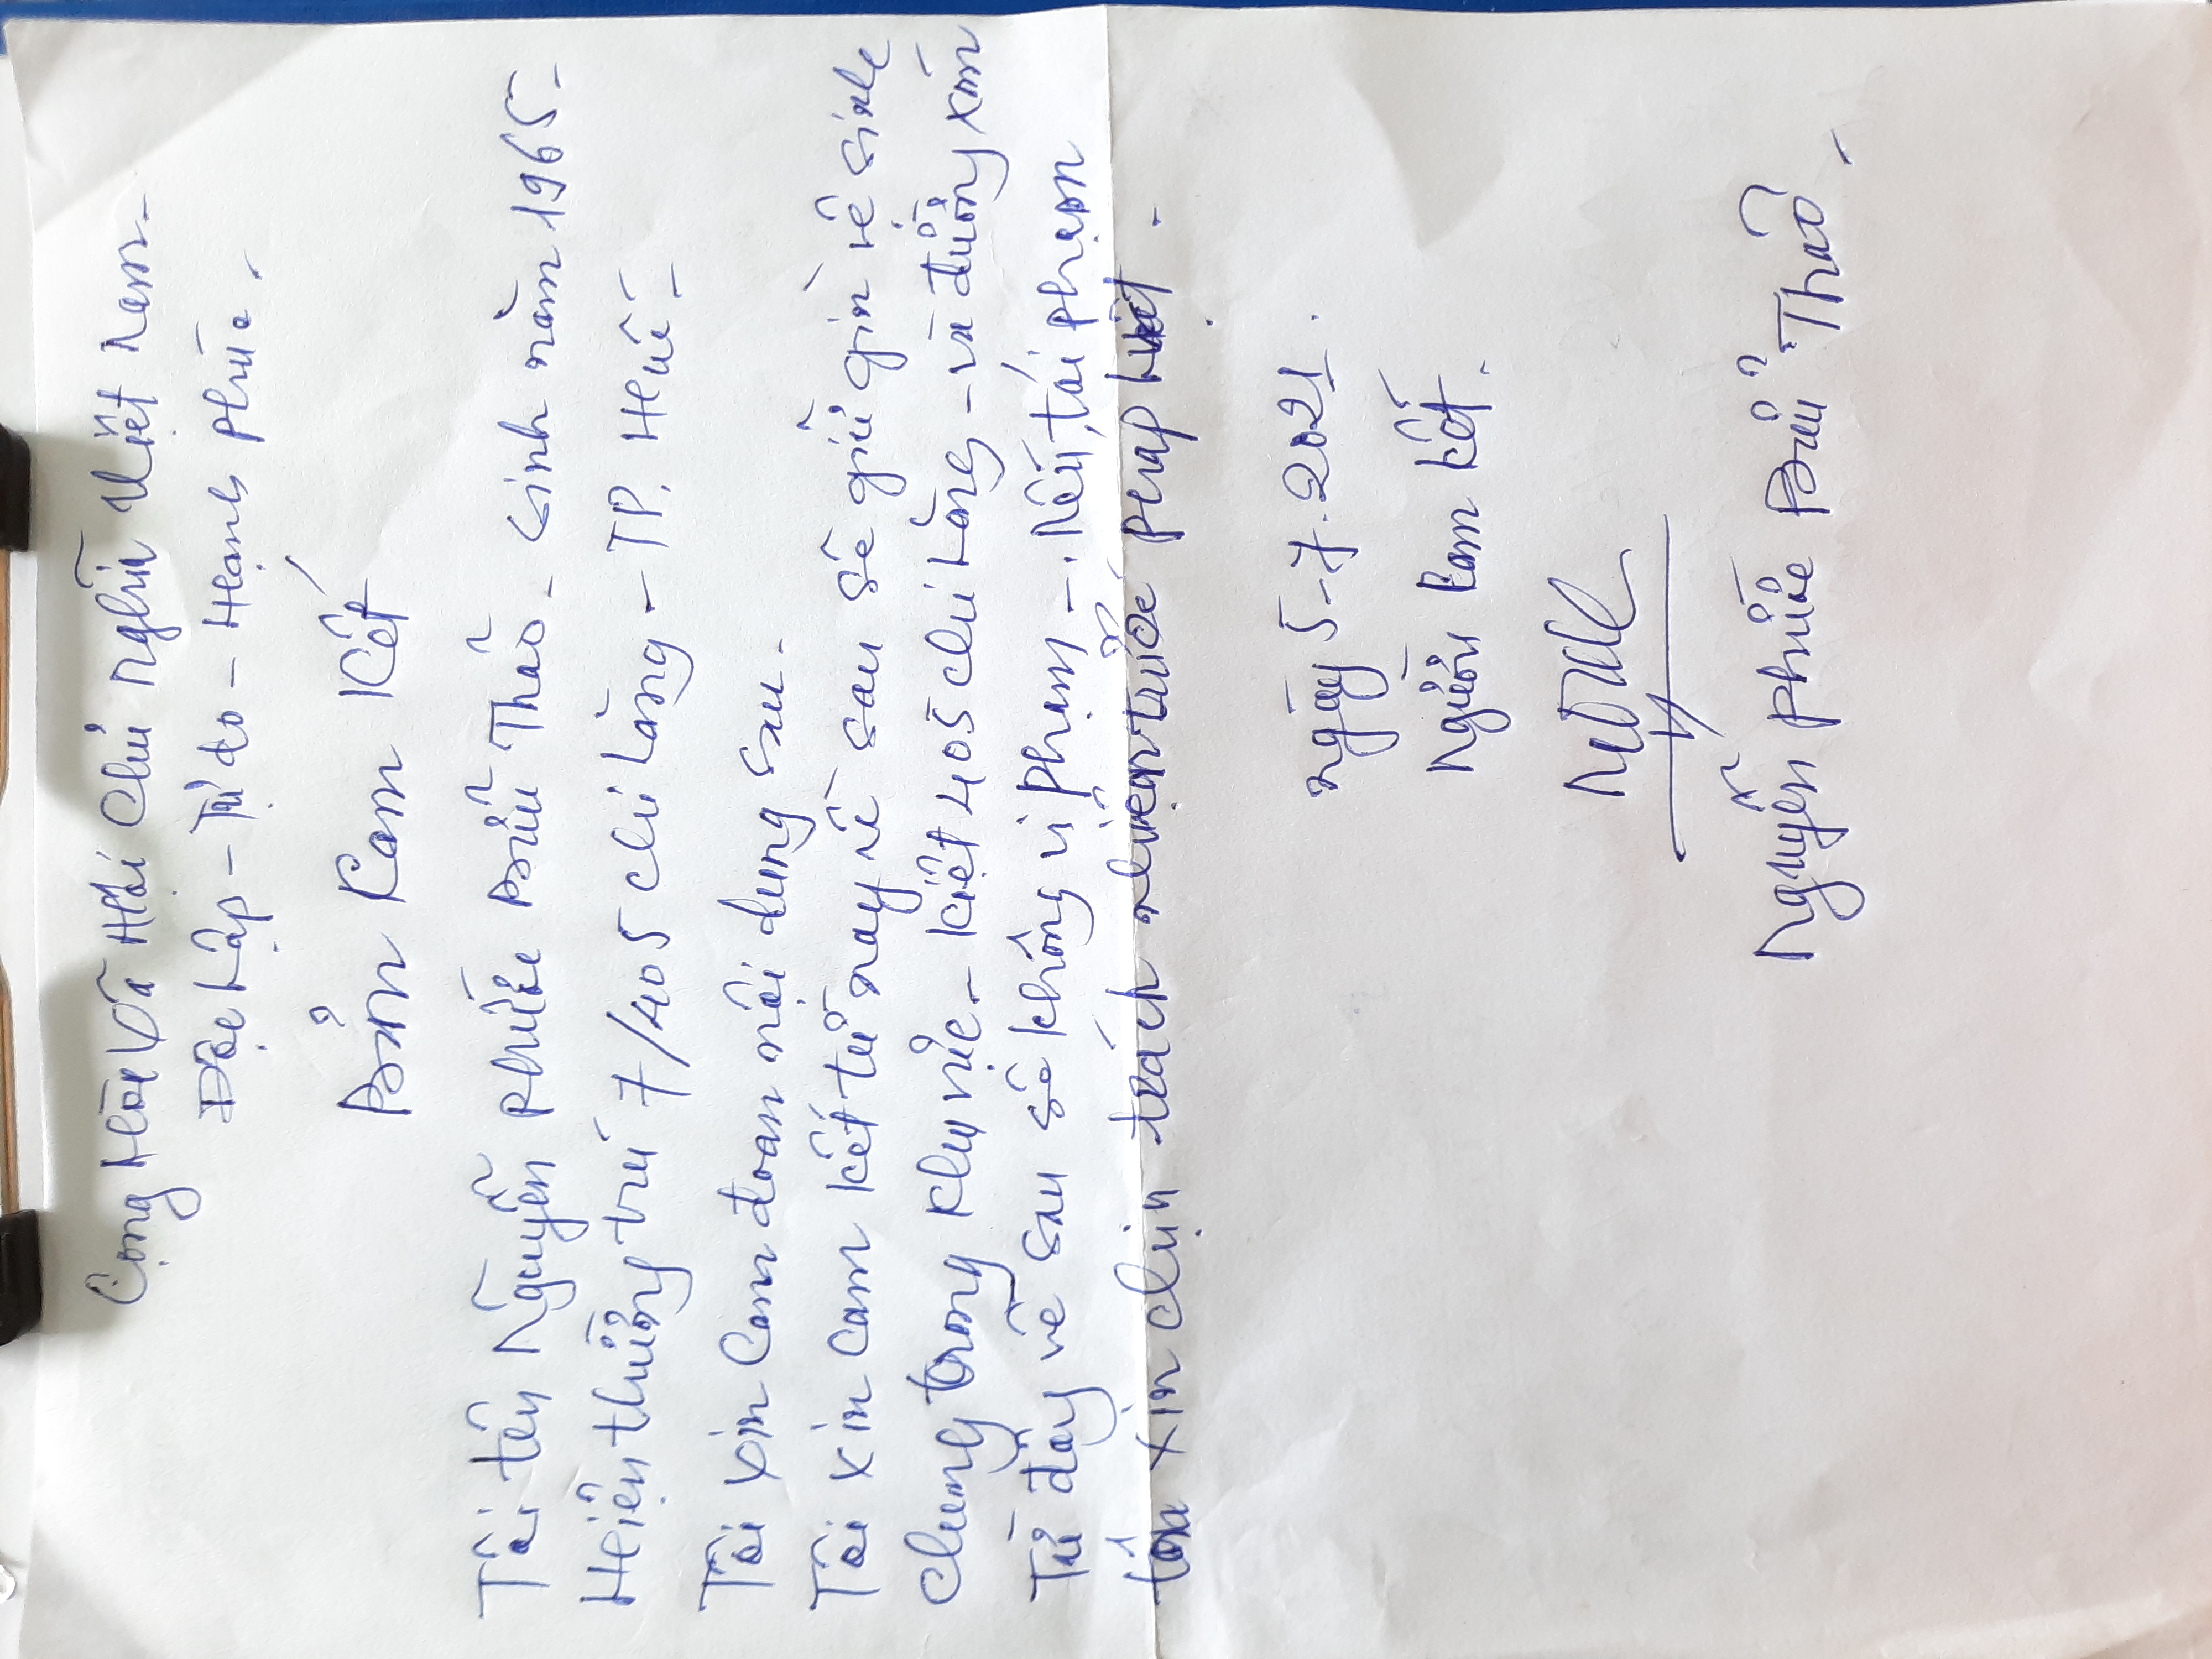 Cộng Hòa Xã Hội Chủ Nghĩa Việt Nam -
Độc Lập - Tự do - Hạnh Phúc.
Bản Cam Kết
Tôi tên Nguyễn Phước Bửu Thảo - sinh năm 1965 -
Hiện thường trú 7/405 Chi Lăng - TP. Huế -
Tôi xin Cam đoan nội dung sau.
Tôi xin cam kết từ nay về sau sẽ giữ gìn vệ sinh
chung trong khu vực - kiệt 405 Chi Lăng - và đường xóm
Từ đây về sau sẽ không vi phạm -. Nếu tái phạm
tôi xin chịu trách nhiệm trước pháp luật -
ngày 5-7-2021.
Người Cam kết.
Nguyễn Phước Bửu Thảo -